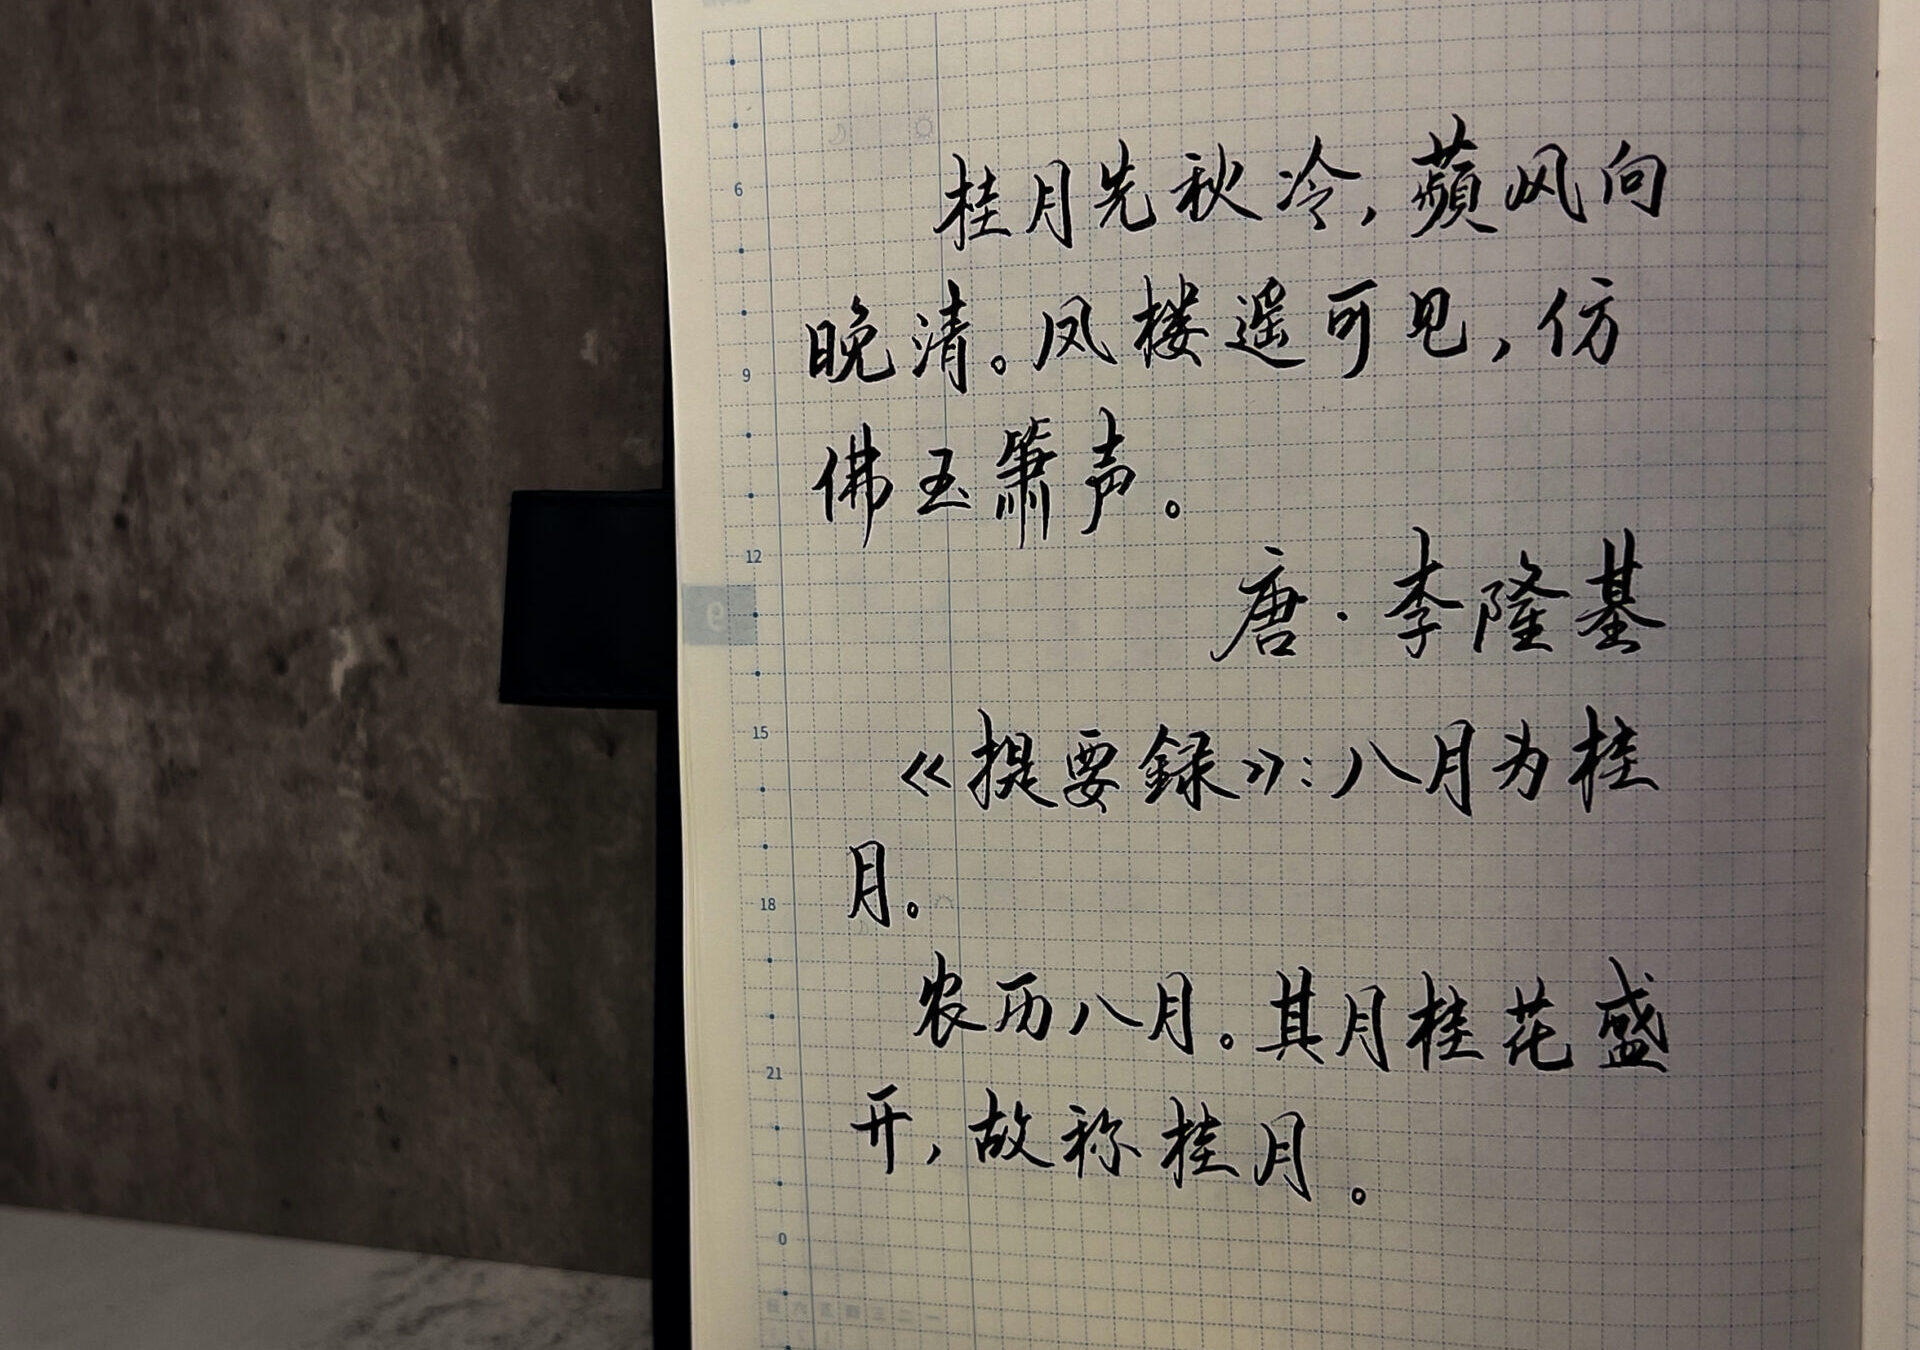 桂月先秋冷,蘋风向
晚清。凤楼遥可见,仿
佛玉箫声。
唐·李隆基
《提要録》:八月为桂
月。
农历八月。其月桂花盛
开,故称桂月。
6
9
12
15
18
21
0
9